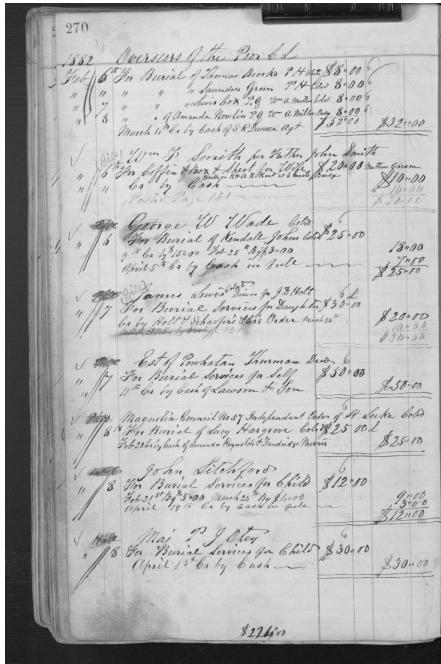 270
1882 Overseers of the Poor C L
Feb 6th For Burial of Thomas Brooks P.H $8"00
" " " " Saunders Green P.H 8"00
" 7 " " " Lewis Cox P.G Wm A Miller 8"00
" 8 " of Amanda Newlin PG Wm A Miller 8"00
$32"00 $32"00
March 11th Cr by Cash of Agt
Wm F. Smith for Father John Smith
" 6th For Coffin & Box & Sheet for Wife $20"00
$10"00
Cr by Cash 10"00
Posted Page 151 $20"00
George W Wade Cold
" 6 For Burial of Kendall Johns Cold $25"00
9th Cr by 15"00 Feb 25th By $3"00 18"00
April 5th Cr by Cash in full 7"00
$25"00
James Lewis for J B Holt
" 7 For Burial Services for Daughter $30"00
Cr by Holt & Schaefers Order March $20"00
10"00
$30"00
Est of Powhatan Thurman Decd
" 7 For Burial Services for Self $50"00
11th Cr by Cash of Lawson & Son $50"00
Magnolia Council No 57 Independant Order of St Luke Cold
" 8th For Burial of Lucy Hargrove Cold $25"00
Feb 28 Cr by Cash of Amanda Reynolds & $25"00
John Litchford
" 8 For Burial Services for Child $12"00
Feb 21st By 5"00 March 25th By $4"00 9"00
April 19th Cr by Cash in full 3"00
$12"00
Maj P J Otey
" 8 For Burial Services for Child $30"00
April 1st Cr by Cash $30"00